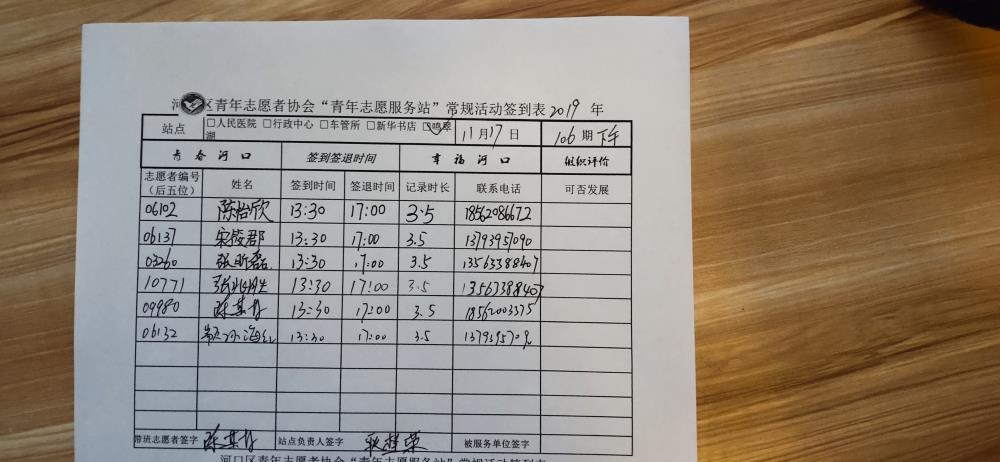 河口区青年志愿者协会“青年志愿服务站”常规活动签到表2019年
站点 □人民医院 □行政中心 □车管所 □新华书店 ☑鸣翠湖 11月17日 106期下午
青春河口 签到签退时间 幸福河口 组织评价
志愿者编号（后五位） 姓名 签到时间 签退时间 记录时长 联系电话 可否发展
06102 陈怡欣 13:30 17:00 3.5 18562086672
06137 13:30 17:00 3.5 13793957090
03260 张昕磊 13:30 17:00 3.5 13563388407
10771 13:30 17:00 3.5 13563388407
09980 陈其丹 13:30 17:00 3.5 18562003375
06132 13:30 17:00 3.5
带班志愿者签字 陈其丹 站点负责人签字 被服务单位签字
河口区青年志愿者协会“青年志愿服务站”常规活动签到表